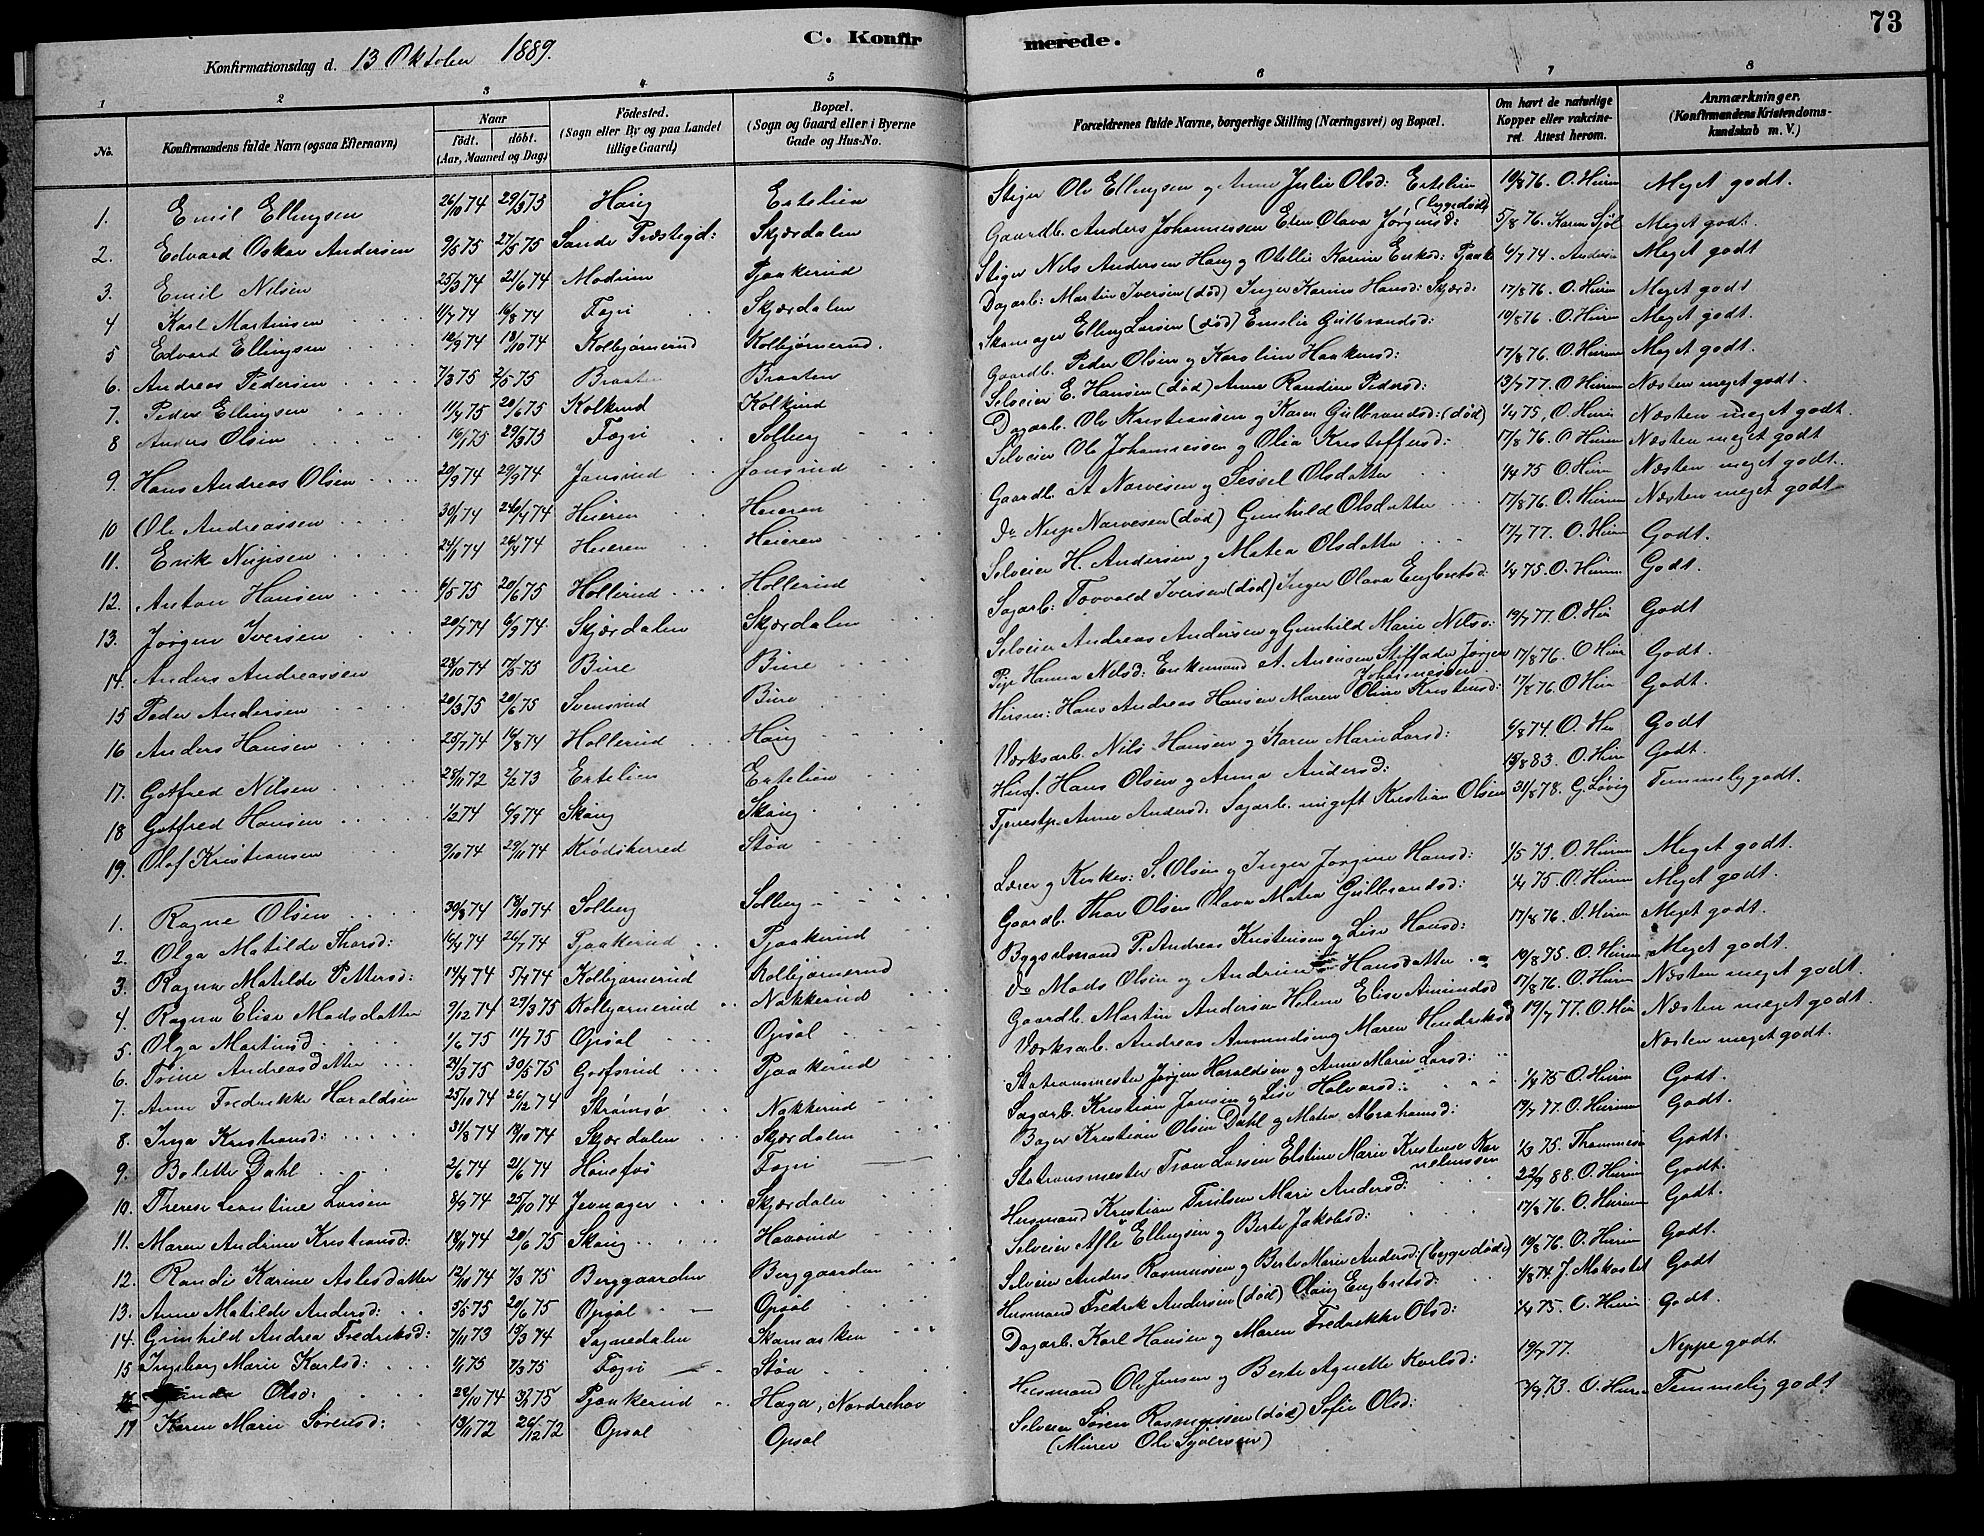 73
C. Konfirmerede.
Konfirmationsdag d. 13 Oktober 1889.
1 2 3 4 5 6 7 8
No. Konfirmandens fulde Navn (ogsaa Efternavn) Naar født. døbt. (Aar, Maaned og Dag) Fødested. (Sogn eller By og paa Landet tillige Gaard) Bopæl. (Sogn og Gaard eller i Byerne Gade og Hus-No. Forældrenes fulde Navne, borgerlige Stilling (Næringsvei) og Bopæl. Om havt de naturlige Kopper eller vakcineret. Attest herom. Anmærkninger. (Konfirmandens Kristendomskundskab m. V.)
1. Emil Ellingsen 26/10 74 29/3 75 Haug Ertelien Stiger Ole Ellingsen og Anne Julie Olsd: Ertelien 19/8 76. O. Hurum Meget godt.
2. Edvard Oskar Andersen 9/5 75 27/5 75 Sande Præstegd: Skjærdalen Gaardb. Anders Johannessen Elen Olava Jørginsd: (begge døde) 5/8 76. Karen Sjøl Meget godt.
3. Emil Nilsen 25/3 74 21/6 74 Modum Pjaakerud Stiger Nils Andersen Haug og Otellie Karine Eriksd: Pjaak 6/7 74. Meget godt
4 Karl Martinsen 11/7 74 16/8 74 Fegri Skjærdalen Dagarb: Martin Iversen (død) Inger Karine Hansd: Skjærd: 17/8 76. O. Hurum Meget godt
5 Edvard Ellingsen 12/9 74 18/10 74 Kolbjørnerud Kolbjørnerud. Skomager Elling Larsen (død) Emelie Gulbrandsd: 19/8 76 O. Hurum Meget godt.
6. Andreas Pedersen 7/3 75 2/5 75 Braaten Braaten Gaardb. Peder Olsen og Karoline Haakensd: 17/8 76. O. Hurum Meget godt.
7. Peder Ellingsen 11/4 75 20/6 75 Kolkind Kolkind Selveier E. Hansen (død) Anne Randine Pedersd: 13/7 77. O Hurum Næsten meget godt.
8 Anders Olsen 16/1 75 29/3 75 Fegri Solberg Dagarb. Ole Kristiansen og Karen Gulbrandsd: (død) 1/4 75, O. Hurum Næsten meget godt.
9. Hans Andreas Olsen 20/9 74 29/9 74 Jonsrud Jonsrud Selveier Ole Johannessen og Olia Kristoffersd: 17/8 76. O Hurum Næsten meget godt
10 Ole Andreassen 30/1 74 26/4 74 Heieren Heieren Gaardb. A Narvesen og Sessel Olsdatter 1/4 75 O Hurum Næsten meget godt.
11. Erik Nirpsen 24/1 74 26/4 74 Heieren Heieren Do Nirp Narvesen (død) Gunhild Olsdatter 17/8 76. O. Hurum Næsten meget godt
12. Anton Hansen 6/5 75 20/6 75 Hollerud Hollerud Selveier H. Andersen og Matea Olsdatter 17/7 77. O. Hurum Godt.
13. Jørgen Iversen 20/7 74 6/9 74 Skjærdalen Skjærdalen Sagarb: Torvald Iversen (død) Inger Olava Engbretsd: 1/4 75. O. Hurum Godt.
14. Anders Andreassen 28/10 74 17/5 75 Bure Bure Selveier Andreas Andersen og Gunhild Marie Nilsd: 19/7 77. O. Hur Godt
15 Peder Andersen 20/3 75 20/6 75 Svensrud Bure Pige Hanna Nilsd: Enkemand A. Anensen Stiffader Jørgen Johannessen 17/8 76. O Hur Godt.
16 Anders Hansen 25/7 74 16/8 74 Hollerud Haug Husm: Hans Andreas Hansen Maren Oline Kristensd: 17/8 76 O Hur Godt.
17. Gotfred Nilsen 28/11 72 2/2 73 Ertelien Ertelien Værksarb. Nils Hansen og Karen Marie Larsd: 6/8 74. O. Hu Godt
18 Gotfred Hansen 1/2 74 6/9 74 Skaug Skaug Husf. Hans Olsen og Anna Andersd: 15/8 83. O. Hurum Godt.
19. Olof Kristiansen 9/10 74 29/11 74 Krødsherred Støa Tjenestp. Anne Andersd: Sagarb. ungift Kristian Olsen 31/8 78. G. Løvig Temmelig godt.
1. Ragne Olsen 30/8 74 18/10 74 Solberg Solberg Lærer og Kirkes: S. Olsen og Inger Jørgine Hansd: 1/5 75. O. Hurum Meget godt.
2. Olga Matilde Thorsd: 16/4 74 26/7 74 Pjaakerud Pjaakerud Gaardb. Thor Olsen Olava Matea Gulbrandsd: 1/4 75. O. Hurum Meget godt.
3. Ragna Matilde Pettersd: 14/4 74 5/7 74 Kolbjørnerud Kolbjørnerud Bygselmand P. Andreas Kristensen og Lise Hansd: 17/8 76. O. Hurum Meget godt.
4. Ragna Elise Madsdatter 9/12 74 29/3 75 Kolbjørnerud Nakkerud Do Mads Olsen og Andrine Hansdatter 19/8 75. O. Hurum Meget godt.
5. Olga Martinsd. 1/6 75 11/7 75 Opsal Opsal Gaardb. Martin Andersen Helene Elise Amundsd 17/8 76. O. Hurum Næsten meget godt.
6. Trine Andreasdatter 21/3 75 30/5 75 Gosfsrud Pjaakerud Værksarb. Andreas Amundsen og Maren Hendriksd 19/7 77. O. Hur Næsten meget godt.
7. Anne Fredrikke Haraldsen 25/10 74 26/12 74 Strømsø Nakkerud Stationsmester Jørgen Haraldsen og Anne Marie Larsd: Næsten meget godt.
8. Inga Kristiansd: 31/8 74 18/10 74 Skjærdalen Skjærdalen Sagarb. Kristian Jansen og Lise Halvorsd: 1/4 75 O. Hurum Godt.
9. Bolette Dahl 2/6 74 21/6 74 Hønefos Fegri Bager Kristian Olsen Dahl og Matea Abrahamsd: 19/7 77. O. Hurum Godt.
10. Therese Leontine Larsen 8/9 74 25/10 74 Jevnager Skjærdalen Stationsmester Tron Larsen Elstine Marie Kristense Kornelinssen 1/3 75. Thommesen Godt.
11. Maren Andrine Kristiansd: 18/11 74 20/6 75 Skaug Haavrud Husmand Kristian Trulsen Mari Andersd: 22/9 88. O. Hurum Godt.
12. Randi Karine Aslesdatter 12/10 74 7/3 75 Berggaarden Berggaarden Selveier Asle Ellingsen og Berte Jakobsd: 17/8 76. O. Hurum Godt.
13. Anne Matilde Andersd: 5/5 75 20/6 75 Opsal Opsal Selveier Anders Rasmussen og Berte Marie Andersd: (begge døde) 19/8 76. O. Hurum Godt.
14. Gunhild Andrea Fredriksd: 7/11 73 15/3 74 Sognedalen Skamarken Husmand Fredrik Andersen (død) Olaug Engbretsd: 1/8 74. J. Makestad Godt
15 Ingeborg Marie Karlsd: 1/1 75 7/3 75 Fegri Støa Dagarb. Karl Hansen og Maren Fredrikke Olsd: 1/4 75. O. Hurum Godt.
Olsd: 22/10 74 75 Pjaakerud Haga, Norderhov Husmand Ole Jensen og Berte Agnette Karlsd: 19/7 77. Neppe godt.
17 Karen Marie Sørensd: 13/11 72 26/12 72 Opsal Opsal Selveier Søren Rasmussen (død) Sofie Olsd: 3/9 73. O. Hurum Temmelig godt.
(Murer Ole Syversen)